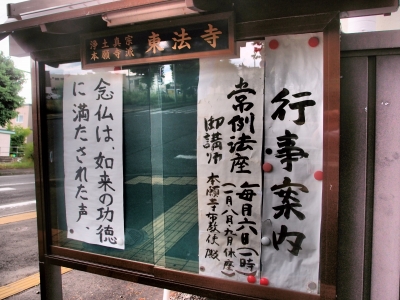 浄土真宗
本願寺派
東法寺
行事案内
常例法座 毎月六日一時
(一月八月九月休座)
御講師 本願寺布教使殿
念仏は、如来の功徳
に満たされた声。